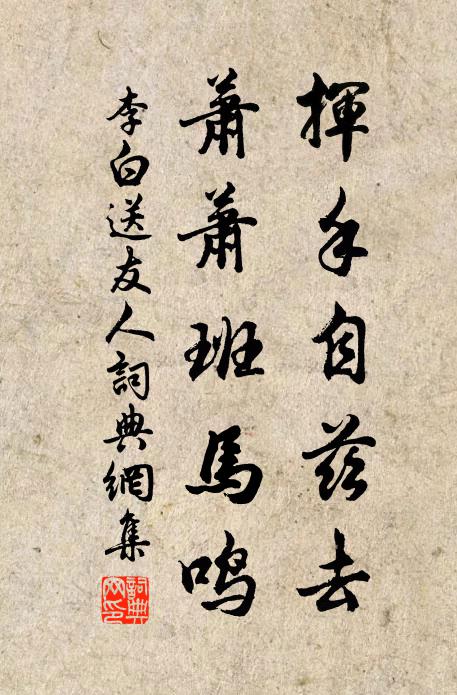 揮手自茲去
蕭蕭班馬鳴
李白送友人詞典網集
詞典網印